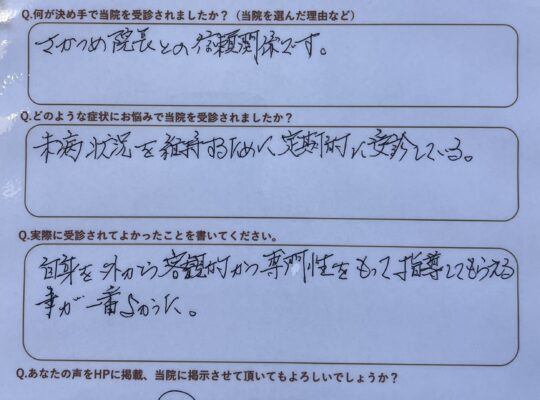 Q.何が決め手で当院を受診されましたか？（当院を選んだ理由など）
さかつめ院長との信頼関係です。
Q.どのような症状にお悩みで当院を受診されましたか？
未病状況を維持するために、定期的に受診している。
Q.実際に受診されてよかったことを書いてください。
自身を外から、客観的かつ専門性をもって指導してもらえる
事が一番よかった。
Q.あなたの声をHPに掲載、当院に掲示させて頂いてもよろしいでしょうか？